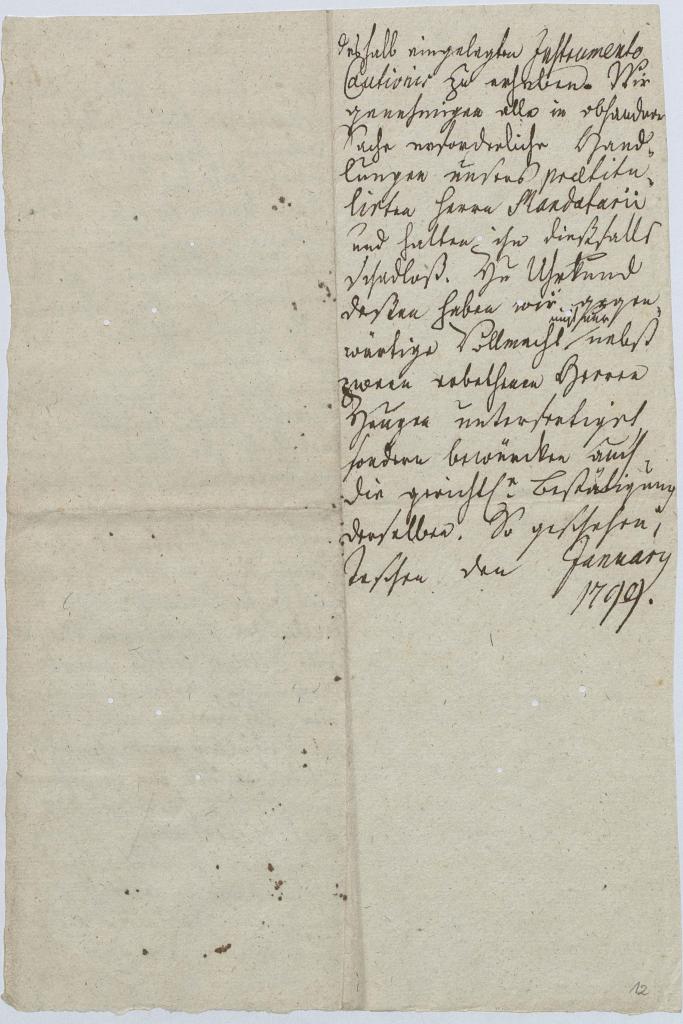 deßhalb eingelegten Instrumento
Cautionis zu erheben. Wir
genehmigen alle in obhandener
Sache erforderliche Hand-
lungen unsers praetitu-
lirten Herrn Mandatarii
und halten ihn dießfalls
schadloß. Zu Uhrkund
deßen haben wir gegen-
wärtige Vollmacht nicht nur nebst
zween erbethenen Herren
Zeugen unterfertiget,
sondern bewürcken auch
die gerichtl. Bestätigung
derselben. So geschehen,
Teschen den January
1799.
12